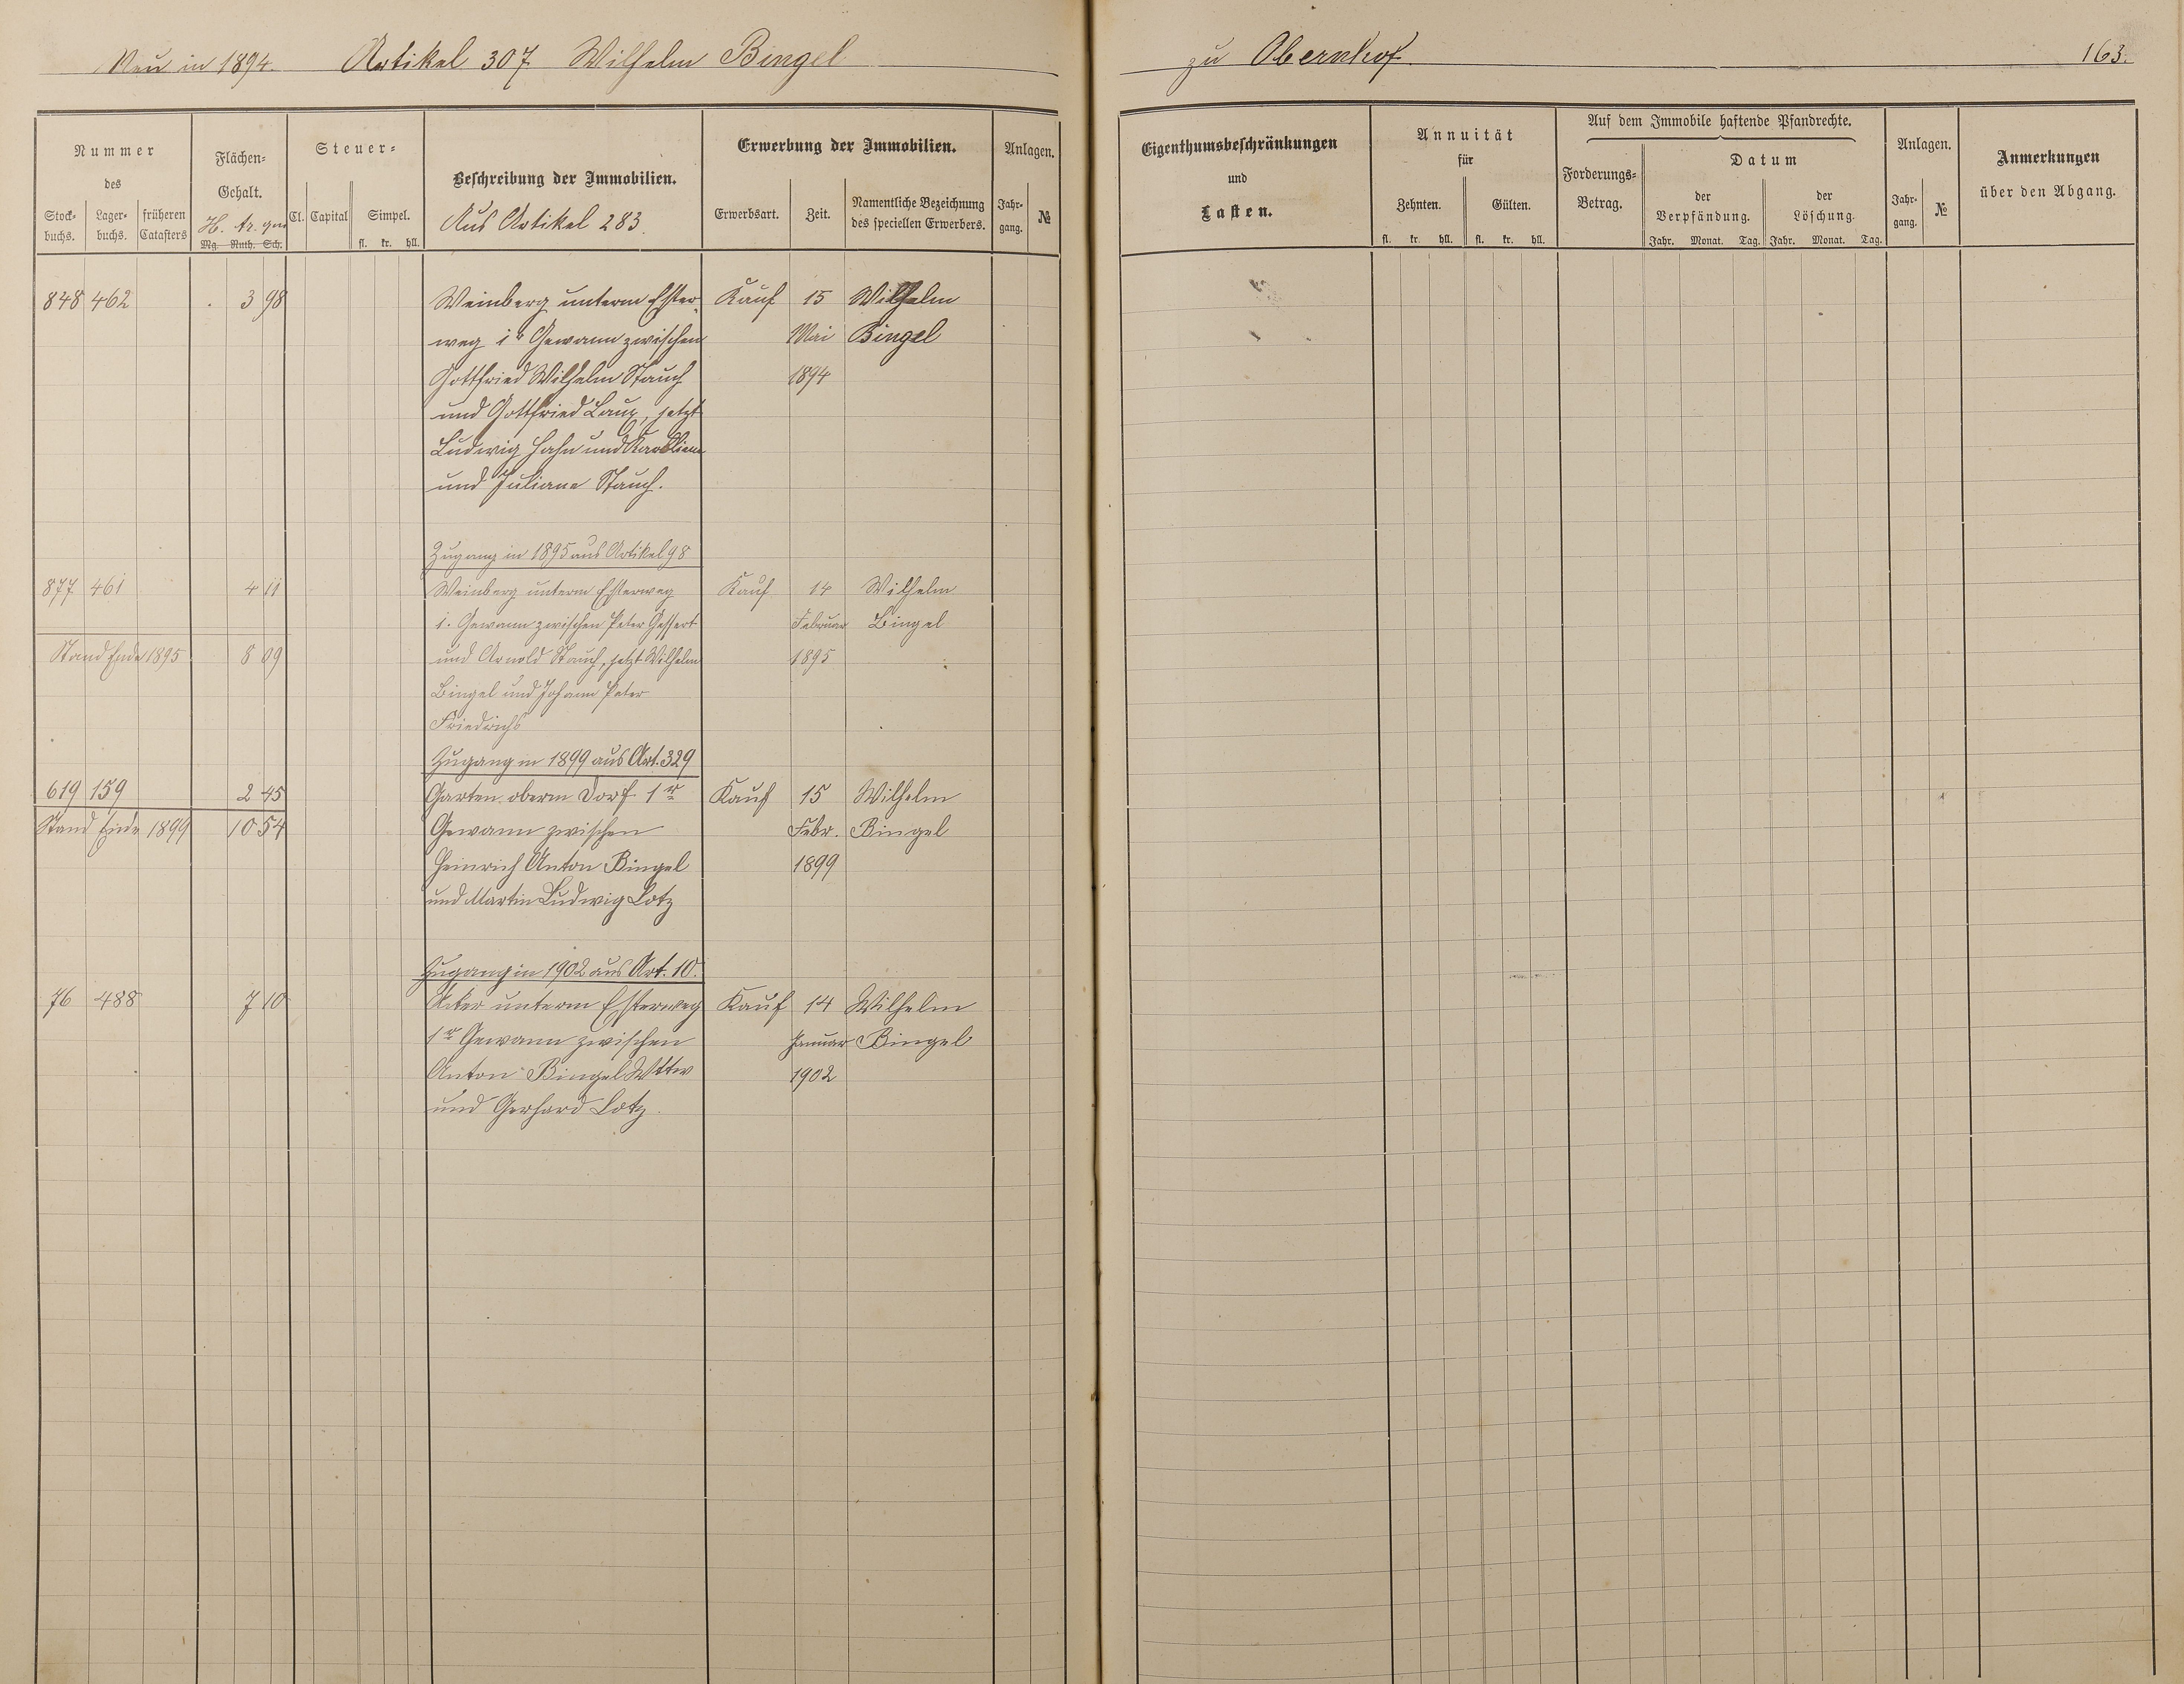 Neu in 1894. Artikel 307 Wilhelm Bingel zu Obernhof. 163.
Nummer des
Stock-buchs. Lager-buchs. früheren Catasters
Flächen-Gehalt.
H. Ar. qm
Mg. Ruth. Sch.
Steuer-
Cl. Capital Simpel.
fl. kr. hll.
Beschreibung der Immobilien.
Aus Artikel 283.
Erwerbung der Immobilien.
Erwerbsart. Zeit. Namentliche Bezeichnung des speciellen Erwerbers.
Anlagen.
Jahr-gang. №
Eigenthumsbeschränkungen
und
Lasten.
Annuität
für
Zehnten. Gülten.
fl. kr. hll. fl. kr. hll.
Auf dem Immobile haftende Pfandrechte.
Forderungs-Betrag.
Datum
der Verpfändung. der Löschung.
Jahr. Monat. Tag. Jahr. Monat. Tag.
Anlagen.
Jahr-gang. №
Anmerkungen
über den Abgang.
848 462 3 98 Weinberg unterm Ester- Kauf 15 Wilhelm
weg 1r Gewann zwischen Mai Bingel
Gottfried Wilhelm Stauch 1894
und Gottfried Laux, jetzt
Ludwig Hahn und Karoline
und Juliane Stauch.
Zugang in 1895 aus Artikel 98
877 461 4 11 Weinberg unterm Esterweg Kauf 14 Wilhelm
1. Gewann zwischen Peter Gessert Februar Bingel
Stand Ende 1895 8 09 und Arnold Stauch, jetzt Wilhelm 1895
Bingel und Johann Peter
Friedrichs
Zugang in 1899 aus Art. 329
619 159 2 45 Garten oberm Dorf 1r Kauf 15 Wilhelm
Stand Ende 1899 10 54 Gewann zwischen Febr. Bingel
Heinrich Anton Bingel 1899
und Martin Ludwig Lotz
Zugang in 1902 aus Art. 10.
76 488 7 10 Acker unterm Esterweg Kauf 14 Wilhelm
1r Gewann zwischen Januar Bingel
Anton Bingel Wttw 1902
und Gerhard Lotz.